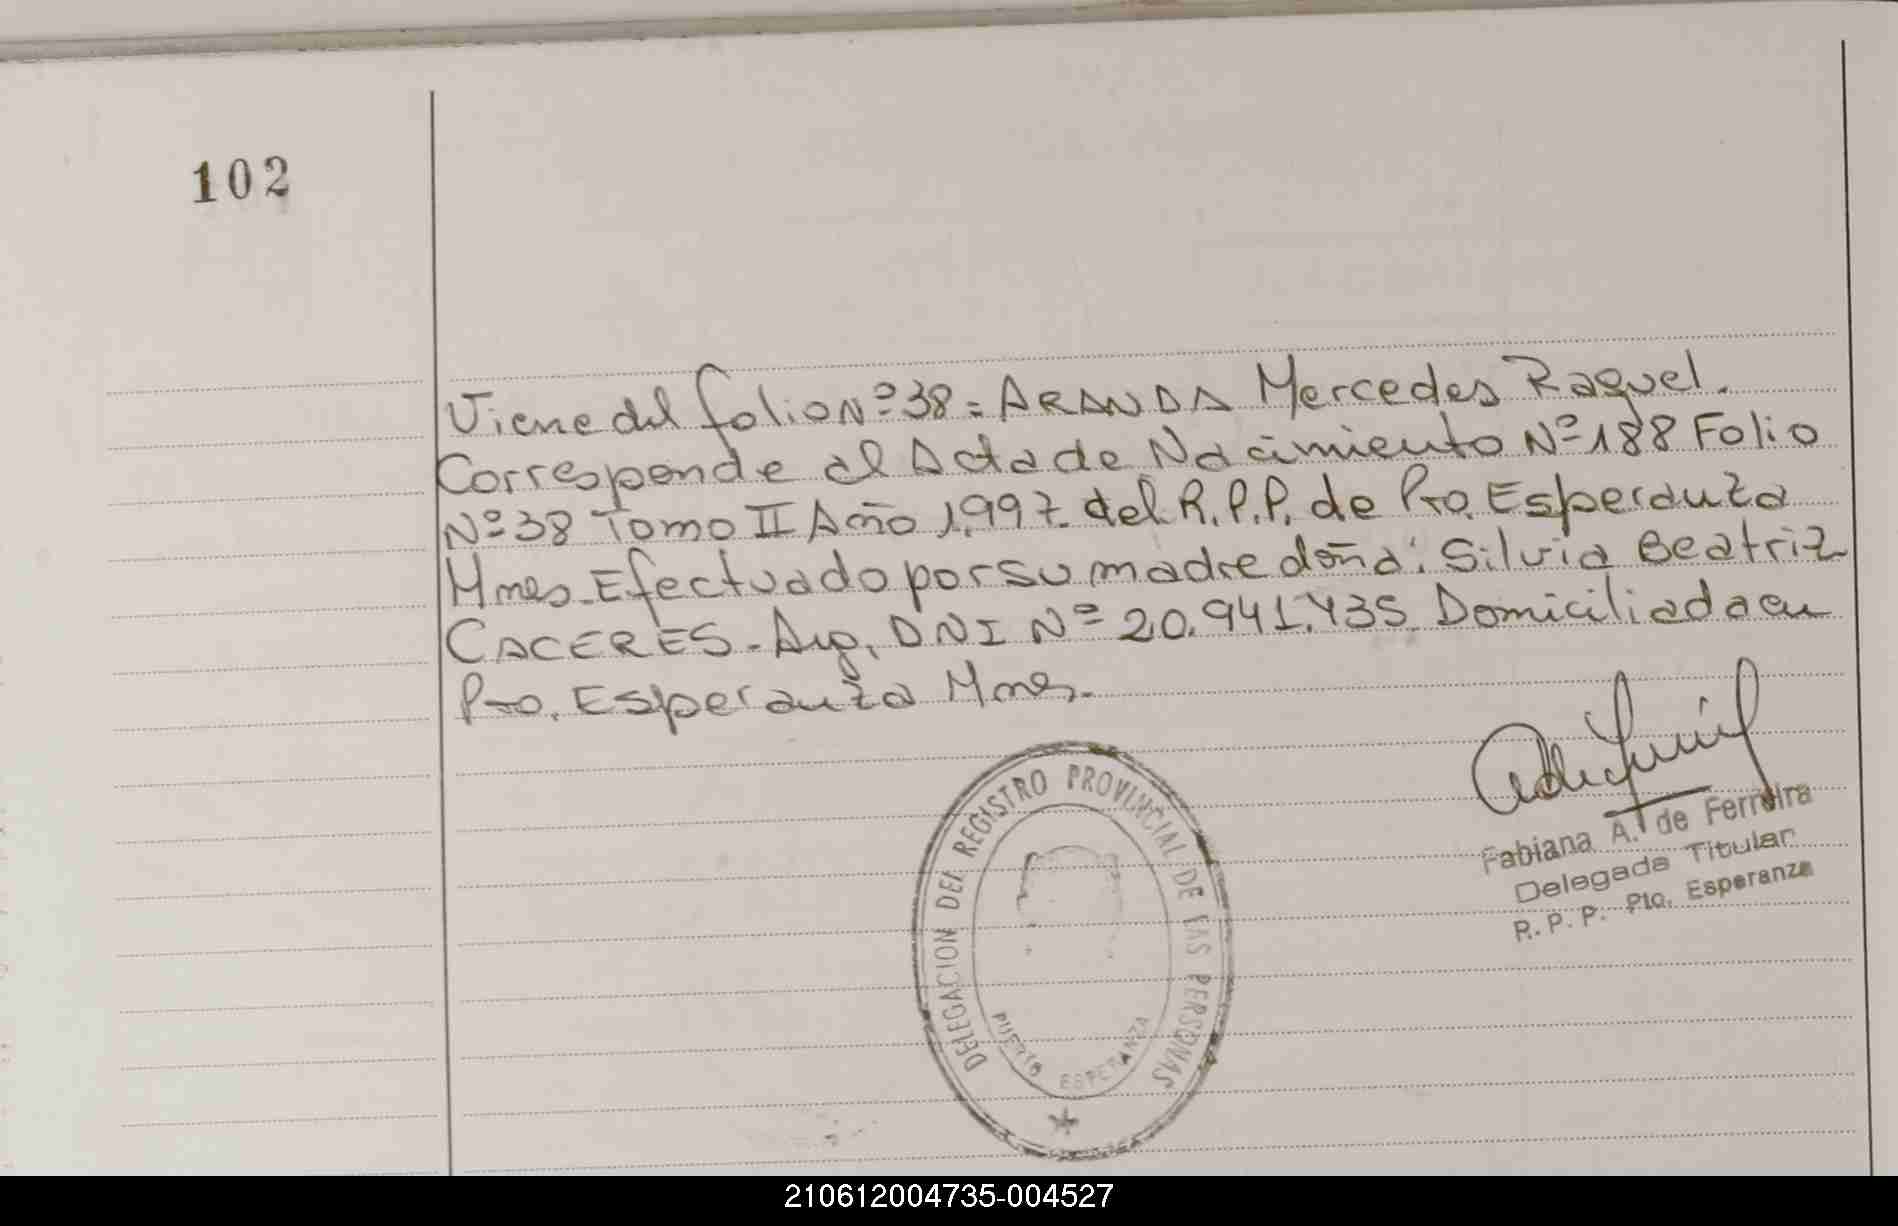 102
Viene del folio Nº 38 = ARANDA Mercedes Raquel.
Corresponde al Acta de Nacimiento Nº 188 Folio
Nº 38 Tomo II Año 1.997. del R.P.P. de Pto. Esperanza
Mnes. Efectuado por su madre doña: Silvia Beatriz
CACERES - Arg. DNI Nº 20.941.435. Domiciliada en
Pto. Esperanza Mnes.
Fabiana A. de Ferreira
Delegada Titular
R.P.P. Pto. Esperanza
DELEGACION DEL REGISTRO PROVINCIAL DE LAS PERSONAS
PUERTO ESPERANZA
210612004735-004527